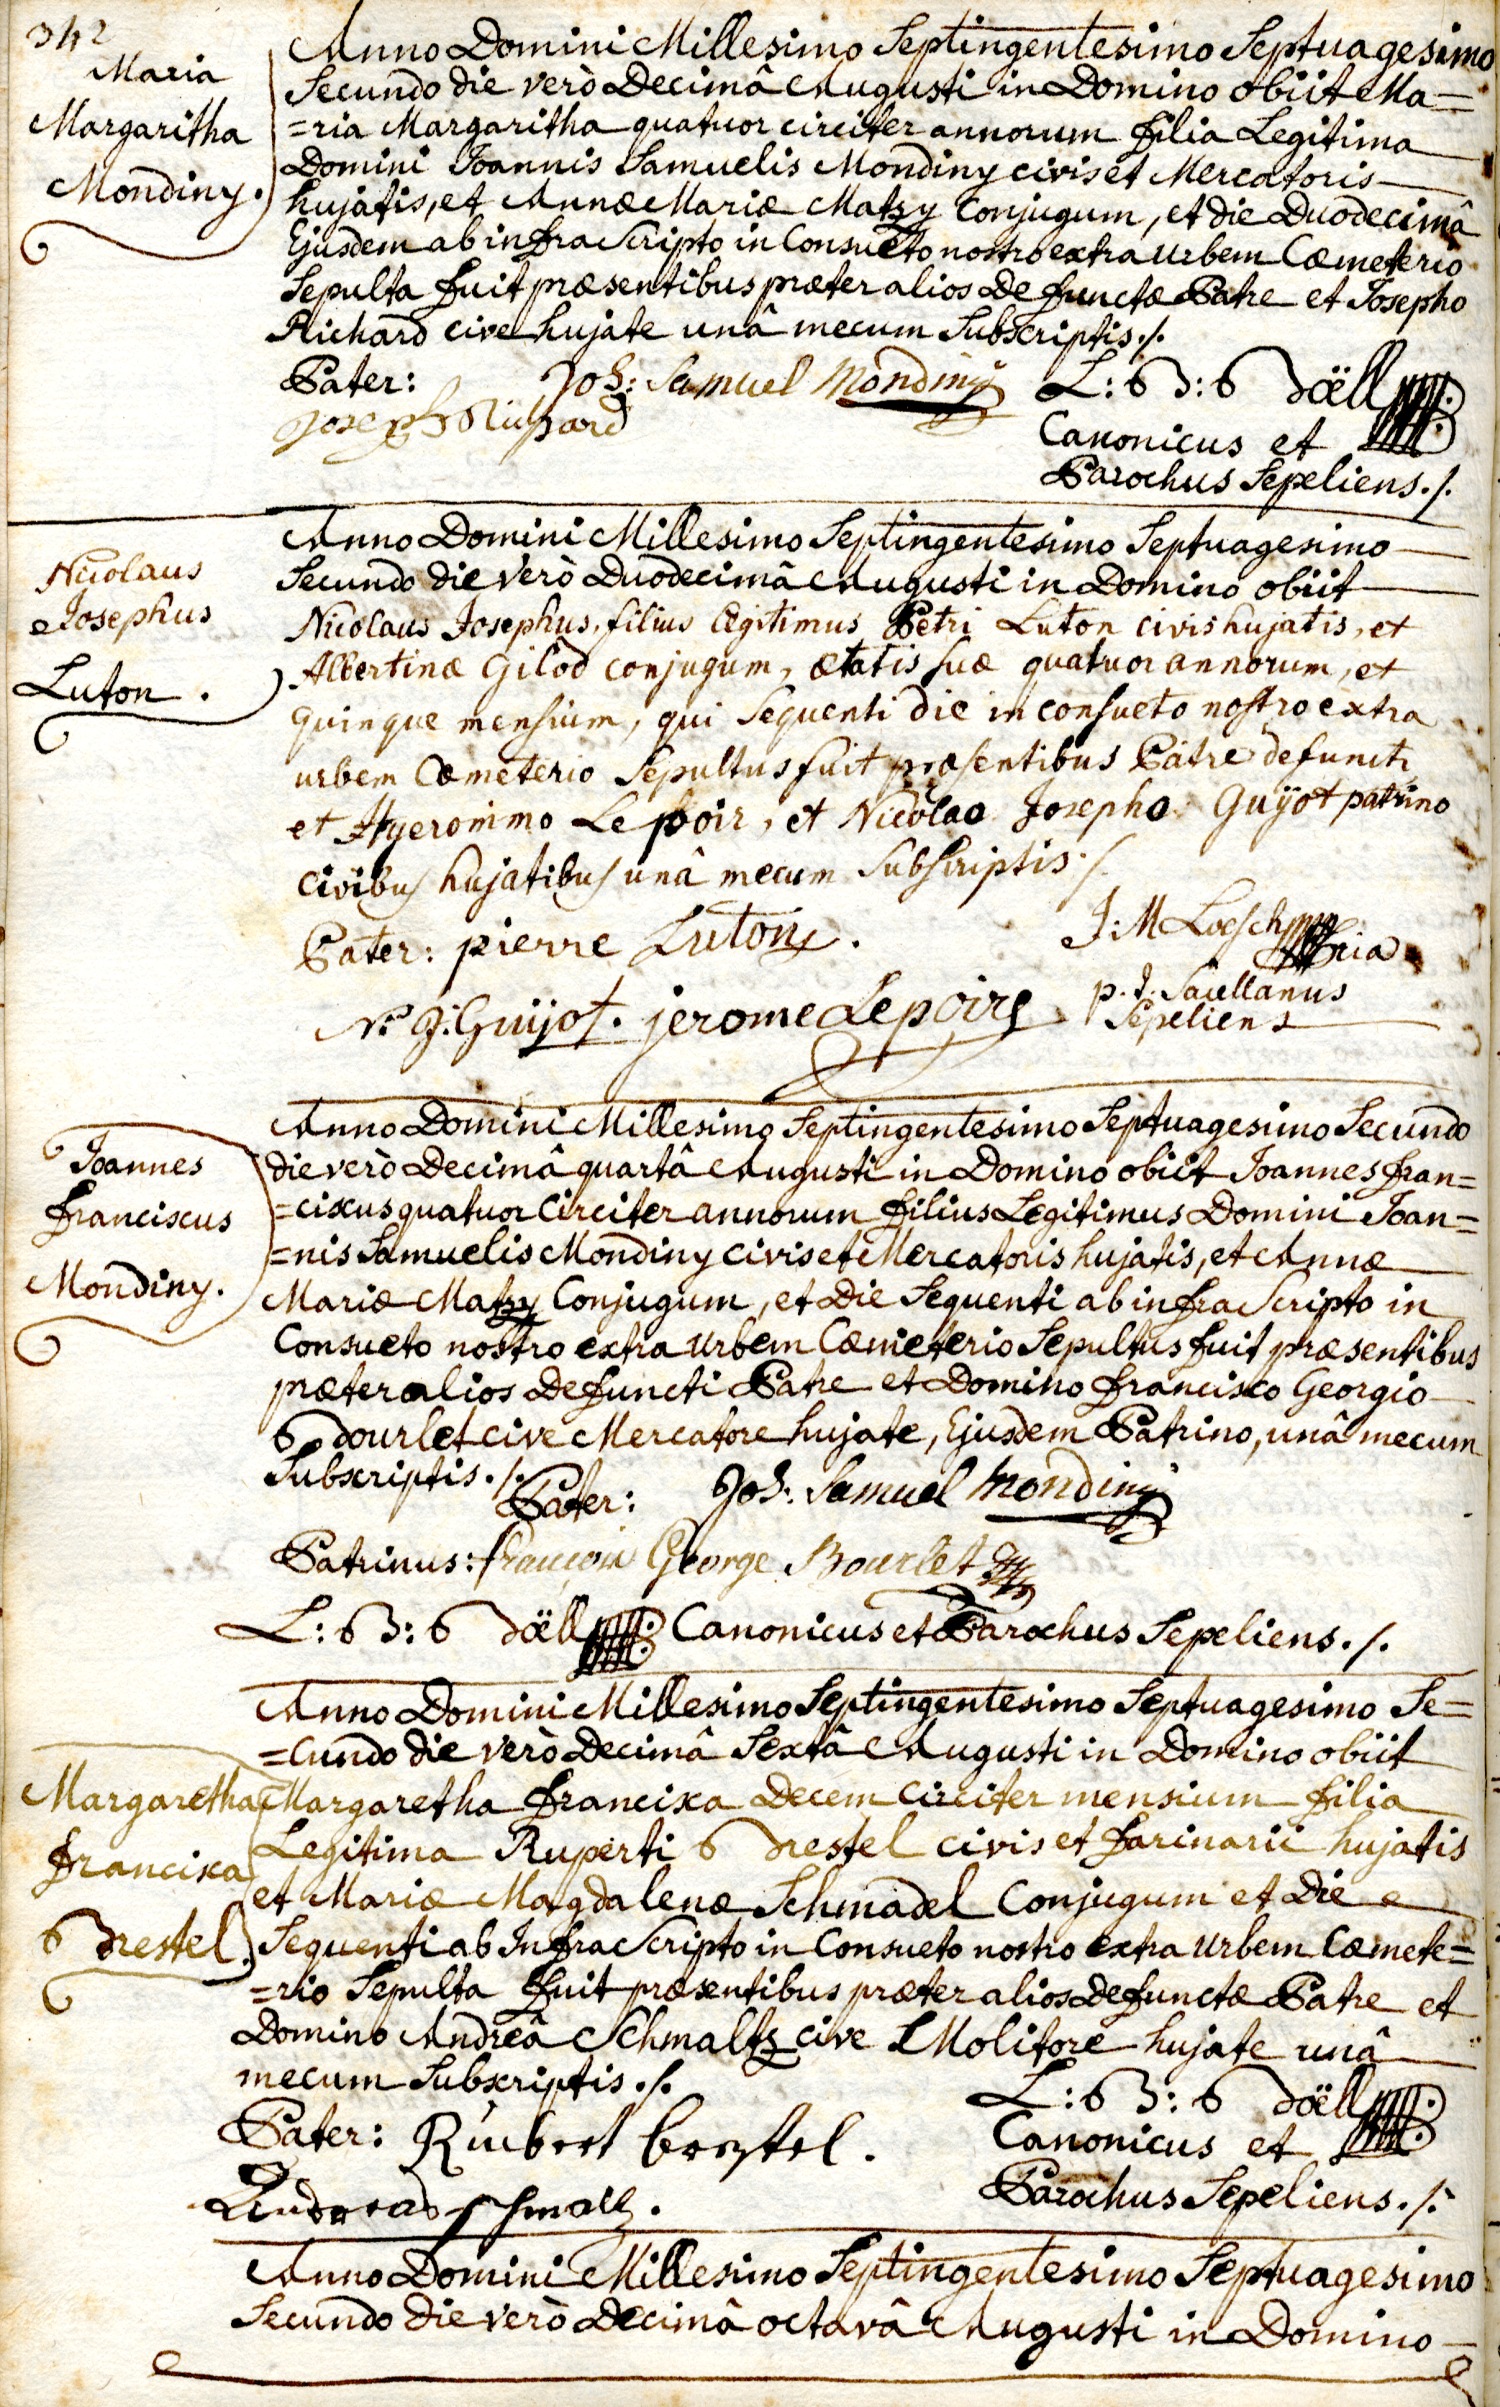 342
Maria
Margaritha
Mondiny.
Anno Domini Millesimo Septingentesimo Septuagesimo
Secundo die verò Decimâ Augusti in Domino obiit Ma=
=ria Margaritha quatuor circiter annorum filia Legitima
Domini Joannis Samuelis Mondiny civis et Mercatoris
hujatis, et Annæ Mariæ Matzy Conjugum, et die Duodecimâ
Ejusdem ab infra Scripto in Consueto nostro extra urbem Cæmeterio
Sepulta fuit præsentibus præter alios Defunctæ Patre et Josepho
Richard cive hujate unâ mecum Subscriptis ./.
Pater: Joh: Samuel Mondiny
Joseph Richard
L: B: Boëll
Canonicus et
Parochus Sepeliens ./.
Nicolaus
Josephus
Luton.
Anno Domini Millesimo Septingentesimo Septuagesimo
Secundo die verò Duodecimâ Augusti in Domino obiit
Nicolaus Josephus, filius legitimus Petri Luton civis hujatis, et
Albertinæ Gilod conjugum, ætatis suæ quatuor annorum, et
quinque mensium, qui sequenti die in consueto nostro extra
urbem Cæmeterio Sepultus fuit præsentibus Patre defuncti
et Hyeronimo Lepoir, et Nicolao Josepho Guÿot patrino
civibus hujatibus unâ mecum Subscriptis ./
Pater: pierre Luton.
J: M Loesch
p. J. Sacellanus
Sepeliens
N. J: Guijot. jerome Lepoire
Joannes
Franciscus
Mondiny.
Anno Domini Millesimo Septingentesimo Septuagesimo Secundo
die verò Decimâ quartâ Augusti in Domino obiit Joannes Fran=
=ciscus quatuor Circiter annorum filius Legitimus Domini Joan=
=nis Samuelis Mondiny civis et Mercatoris hujatis, et Annæ
Mariæ Matzy Conjugum, et Die Sequenti ab infra Scripto in
Consueto nostro extra urbem Cæmeterio Sepultus fuit præsentibus
præter alios Defuncti Patre et Domino Francisco Georgio
Bourlet cive Mercatore hujate, Ejusdem Patrino, unâ mecum
Subscriptis ./.
Pater: Joh: Samuel Mondiny
Patrinus: françois George Bourlet
L: B: Boëll Canonicus et Parochus Sepeliens ./.
Margaretha
Francisca
Brestel.
Anno Domini Millesimo Septingentesimo Septuagesimo Se=
=cundo die verò Decimâ Sextâ Augusti in Domino obiit
Margaretha Francisca Decem Circiter mensium filia
Legitima Ruperti Brestel civis et farinarii hujatis
et Mariæ Magdalenæ Schmadel Conjugum et Die
Sequenti ab Infra Scripto in Consueto nostro extra urbem Cæmete=
=rio Sepulta fuit præsentibus præter alios Defunctæ Patre et
Domino Andreâ Schmaltz cive Molitore hujate unâ
mecum Subscriptis ./.
Pater: Rubert brestel.
Andreas schmaltz.
L: B: Boëll
Canonicus et
Parochus Sepeliens ./.
Anno Domini Millesimo Septingentesimo Septuagesimo
Secundo die verò Decimâ octavâ Augusti in Domino